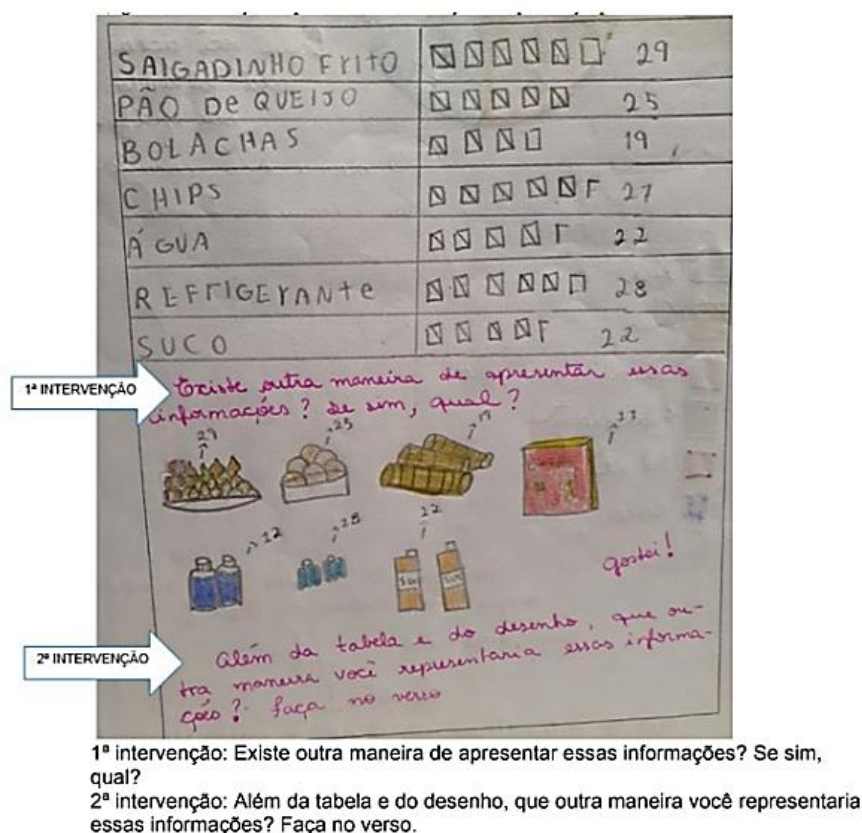 SAlGADINHO FrITO 29
PÃO De QUEIJO 25
BOLACHAS 19
CHIPS 27
ÁGUA 22
REFrIGErANte 28
SUCO 22
1ª INTERVENÇÃO
Existe outra maneira de apresentar essas
informações? Se sim, qual?
29 25 19
22 28 22
gostei!
2ª INTERVENÇÃO
Além da tabela e do desenho, que ou-
tra maneira você representaria essas informa-
ções? Faça no verso
1ª intervenção: Existe outra maneira de apresentar essas informações? Se sim,
qual?
2ª intervenção: Além da tabela e do desenho, que outra maneira você representaria
essas informações? Faça no verso.